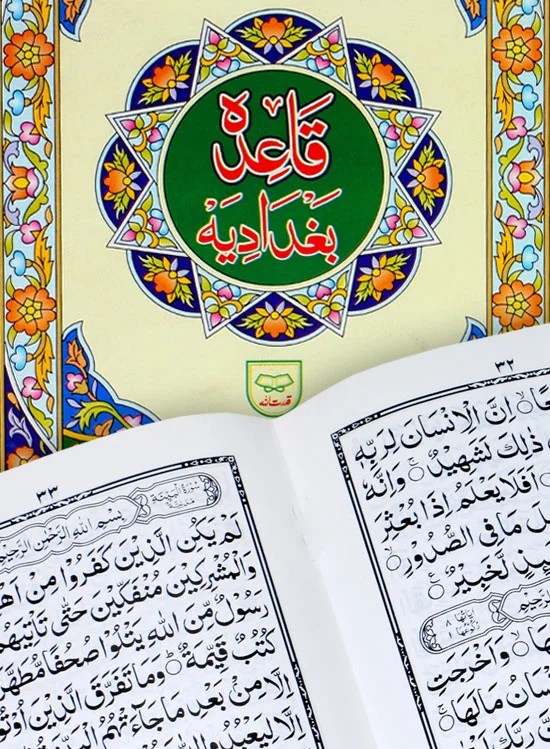 قَاعِدَه
بَغْدَادِيَه
قدرت الله
٣٢
اِنَّ الْاِنْسَانَ لِرَبِّهٖ
ذٰلِكَ لَشَهِيْدٌ ۝ وَاِنَّهٗ
۝ اَفَلَا يَعْلَمُ اِذَا بُعْثِرَ
مَا فِى الصُّدُوْرِ ۝
لَّخَبِيْرٌ ۝
اٰيَاتُهَا ٨
رُكُوْعُهَا ١
۝ وَاَخْرَجَتِ
مَا لَهَا ۝
رَبَّكَ
٣٣
سُوْرَةُ الْبَيِّنَةِ
بِسْمِ اللّٰهِ الرَّحْمٰنِ الرَّحِيْمِ
لَمْ يَكُنِ الَّذِيْنَ كَفَرُوْا مِنْ
وَالْمُشْرِكِيْنَ مُنْفَكِّيْنَ حَتّٰى
رَسُوْلٌ مِّنَ اللّٰهِ يَتْلُوْا صُحُفًا
كُتُبٌ قَيِّمَةٌ ۝ وَمَا تَفَرَّقَ الَّذِيْنَ
اِلَّا مِنْۢ بَعْدِ مَا جَآءَتْهُمُ
اِلَّا لِيَعْبُدُوا